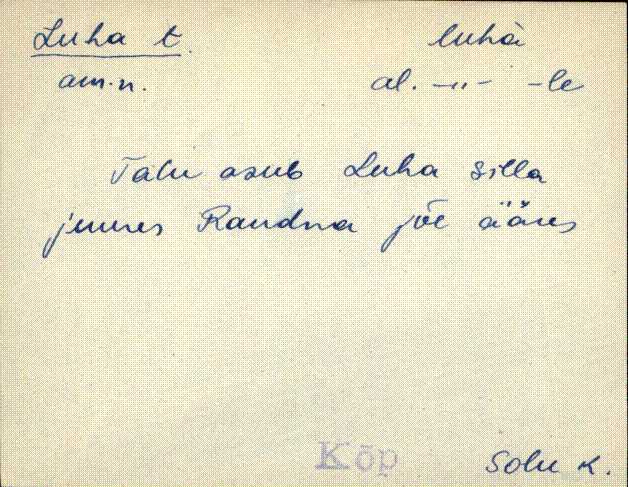 Luha t. luhà
am.n. al. -"- -le
Talu asub Luha silla
juures Raudna jõe ääres
Kõp Solu k.